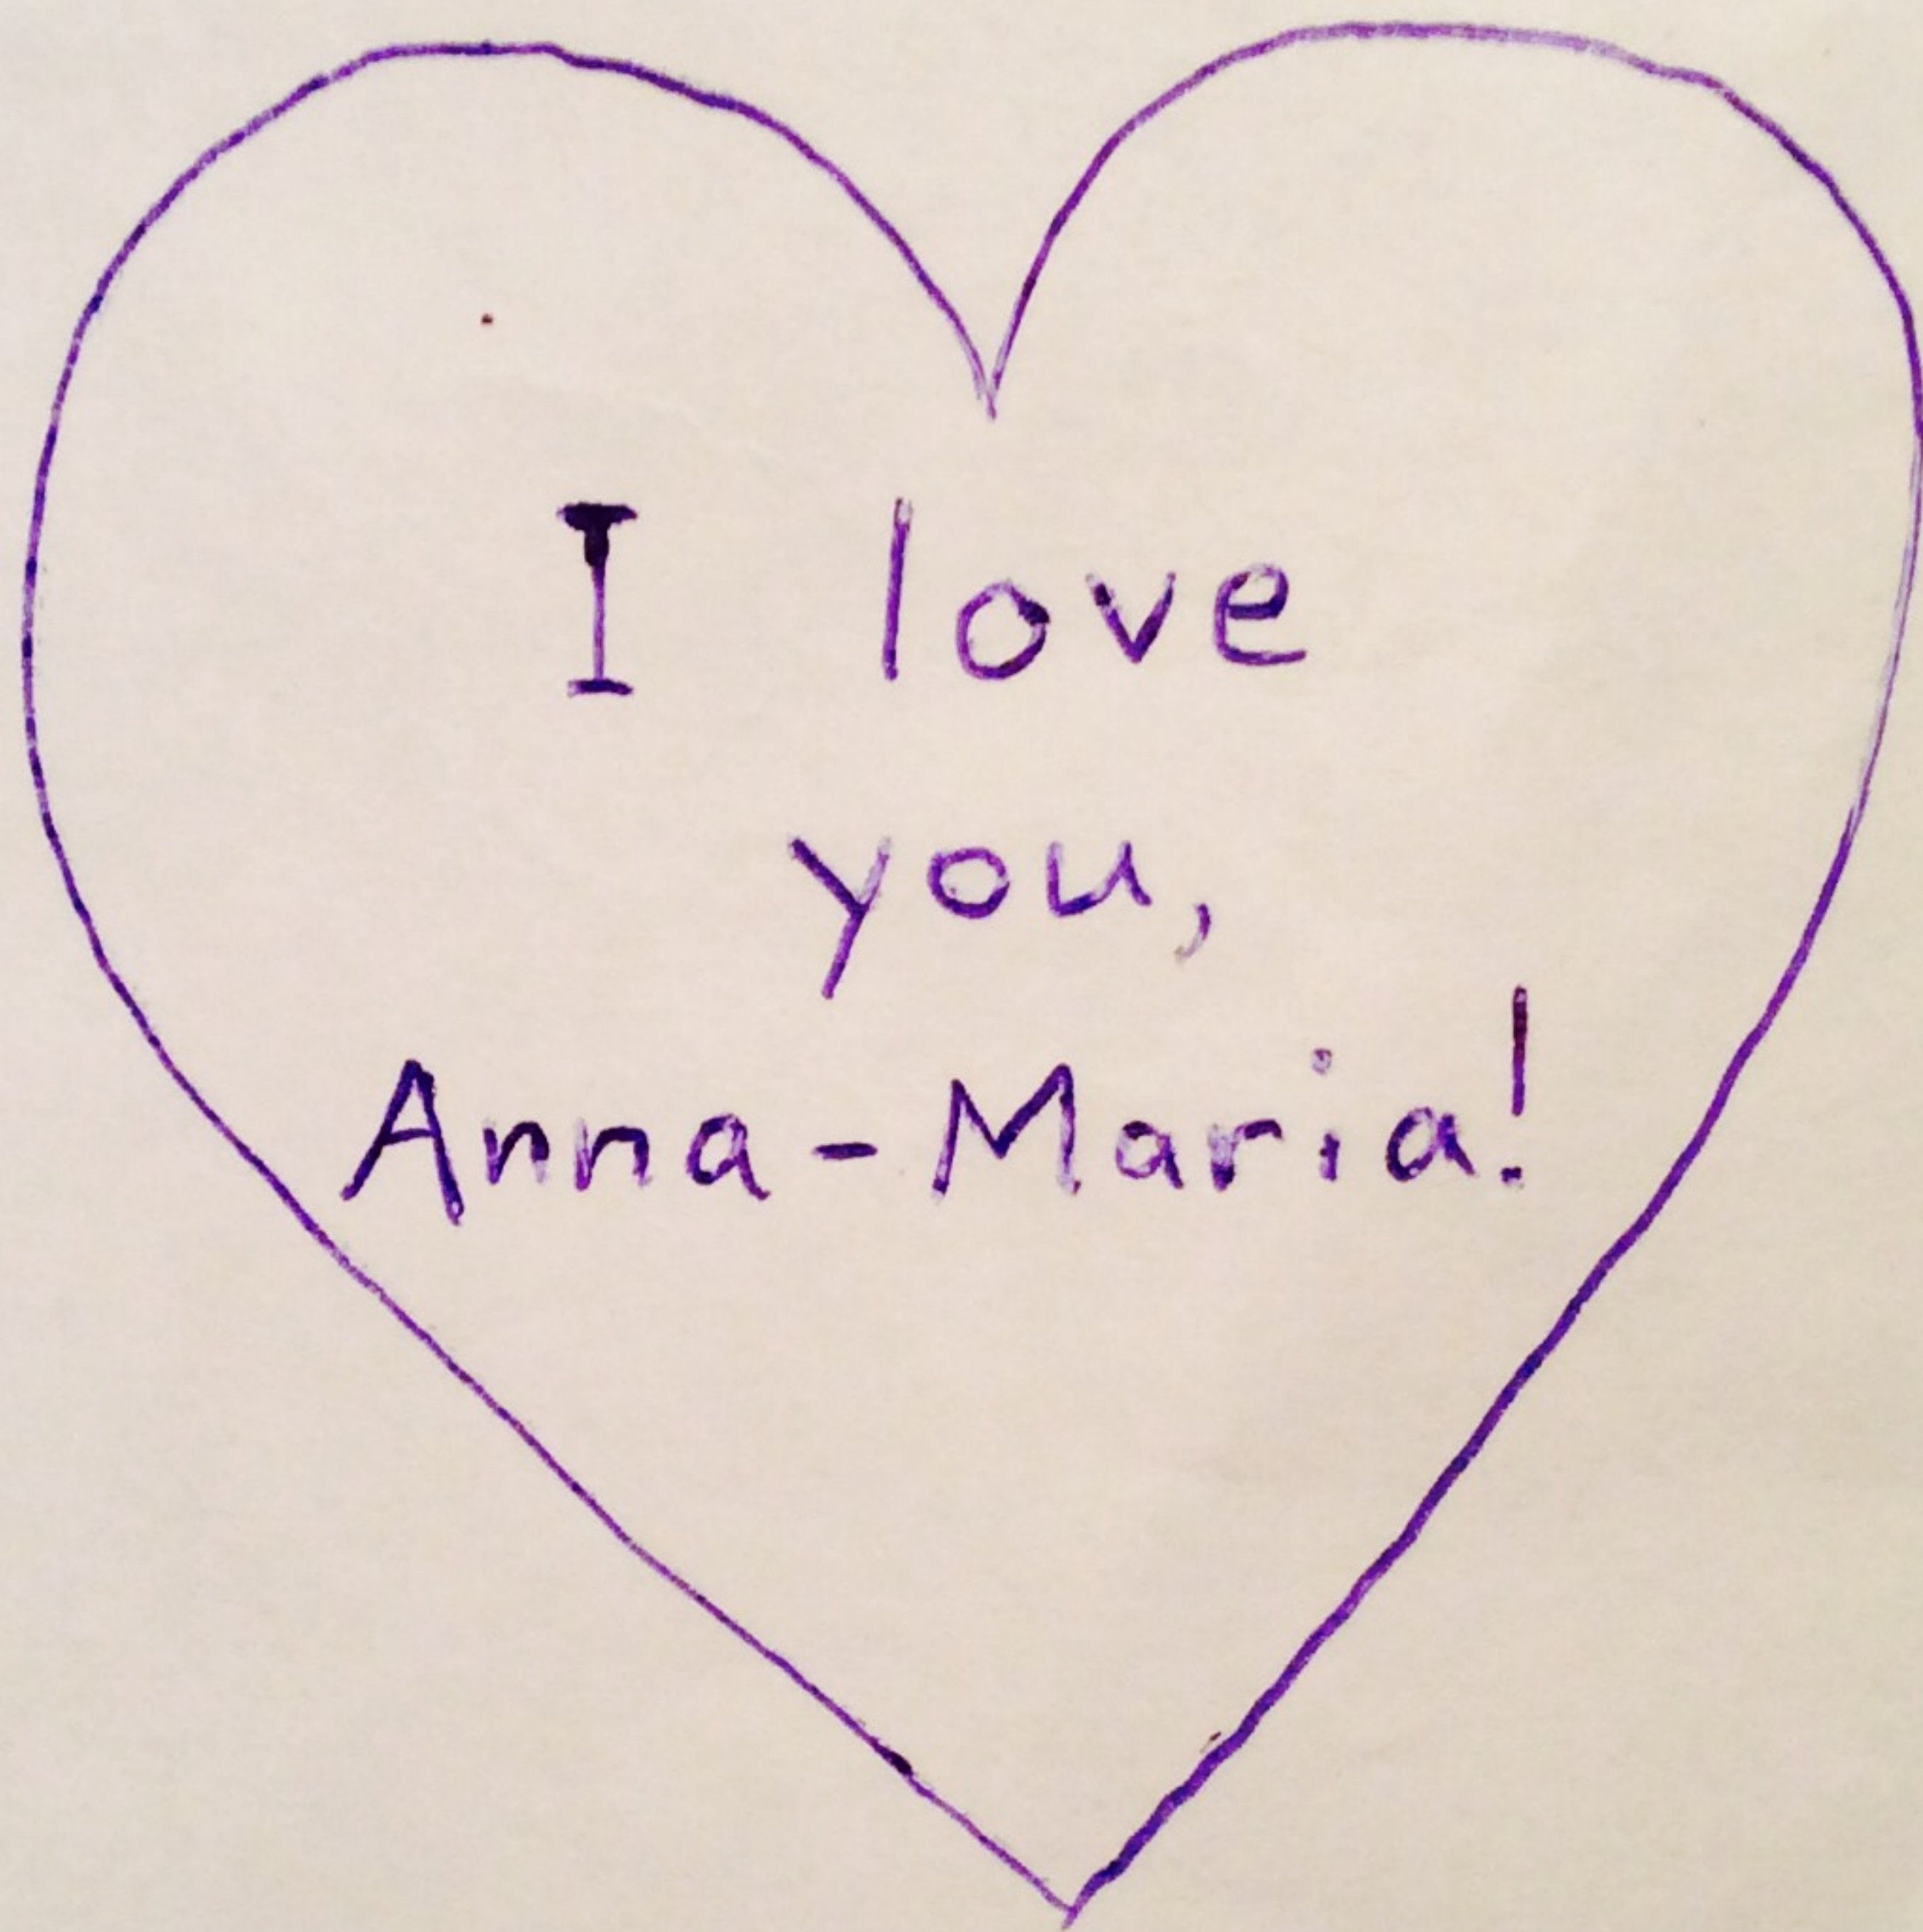 I love
you,
Anna-Maria!